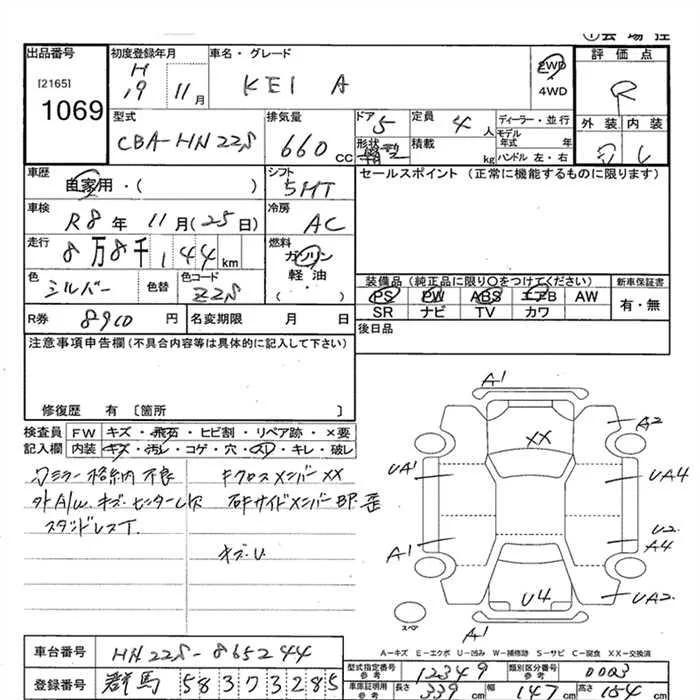 ①会場控
出品番号
[2165]
1069
初度登録年月
H19 11月
車名・グレード
KEI A
2WD
4WD
評価点
R
型式
CBA-HN22S
排気量
660 CC
ドア 5
形状
定員 4 人
積載 kg
ディーラー・並行
モデル年式 年
ハンドル 左・右
外装 内装
車歴
自家用・( )
シフト
5MT
セールスポイント (正常に機能するものに限ります)
車検
R8年 11月(25日)
冷房
AC
走行
8万8千144km
燃料
ガソリン
軽油
( )
色
シルバー
色替
色コード
Z2S
装備品 (純正品に限り○をつけてください)
新車保証書
PS PW ABS エアB AW
有・無
SR ナビ TV カワ
R券 8910 円
名変期限 月 日
後日品
注意事項申告欄(不具合内容等は具体的に記入して下さい)
修復歴 有 〔箇所 〕
検査員 FW キズ・飛石・ヒビ割・リペア跡・×要
記入欄 内装 キズ・汚レ・コゲ・穴・スレ・キレ・破レ
ワミラー格納不良 Fクロスメンバーxx
外A/W キズ・センターレス 右Fサイドメンバー BP 歪
スタッドレスT.
キズ・U
A1
A2
XX
UA1
UA4
A1
U2
A4
U4
UA2
A1
スペア
A-キズ E-エクボ U-凹み W-補修跡 S-サビ C-腐食 XX-交換済
車台番号 HN22S-865244
登録番号 群馬 583 7 3285
型式指定番号 参考 12349
類別区分番号 参考 0003
車庫証明用 参考 長さ 339 幅 147 高さ 154 cm